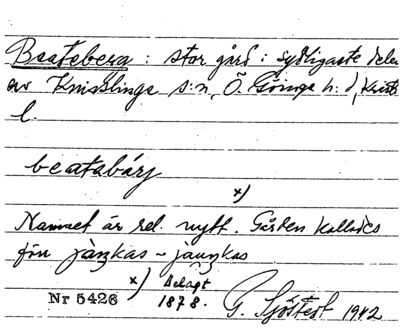 Beateberg : stor gård i sydligaste delen
av Knislinge s:n, Ö. Göinge h:d, Krist.
l.
beatabärj
x)
Namnet är rel. nytt. Gården kallades
förr jàŋkas - jàuŋkas
x) Belagt
1878.
Nr 5426
G. Sjöstedt 1942